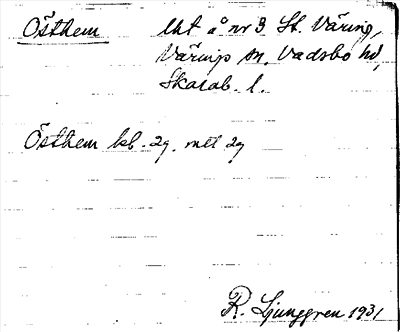 Östhem Uht å nr 3 St. Väring,
Värings sn, Vadsbo hd,
Skarab. l.
Östhem kb. 29. mtl 29
R. Ljunggren 1931